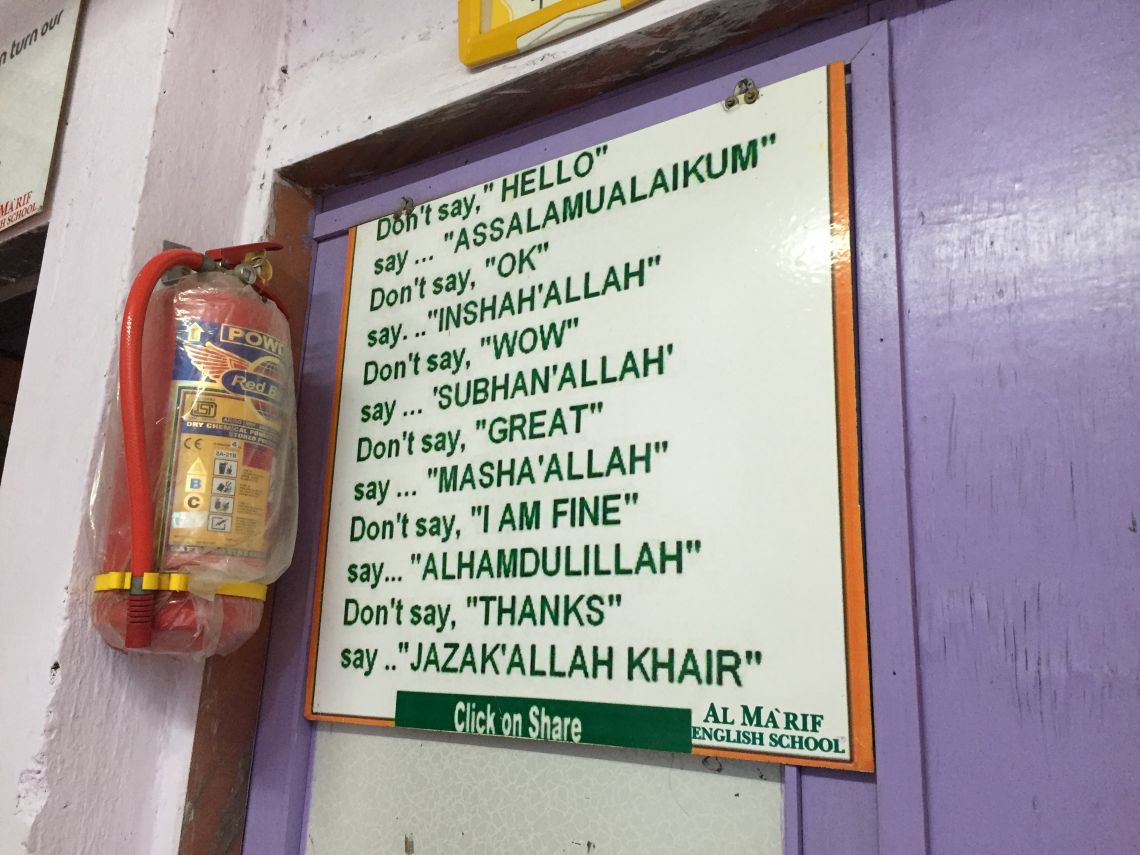 n turn our
MA`RIF
H SCHOOL
Don't say," HELLO"
say ... "ASSALAMUALAIKUM"
Don't say, "OK"
say. .."INSHAH'ALLAH"
Don't say, "WOW"
say ... 'SUBHAN'ALLAH'
Don't say, "GREAT"
say ... "MASHA'ALLAH"
Don't say, "I AM FINE"
say... "ALHAMDULILLAH"
Don't say, "THANKS"
say .."JAZAK'ALLAH KHAIR"
Click on Share
AL MA`RIF
ENGLISH SCHOOL
POW
Red B
ISI
DRY CHEMICAL POW
STORED PRES
CE
2A-21B
A
B
C